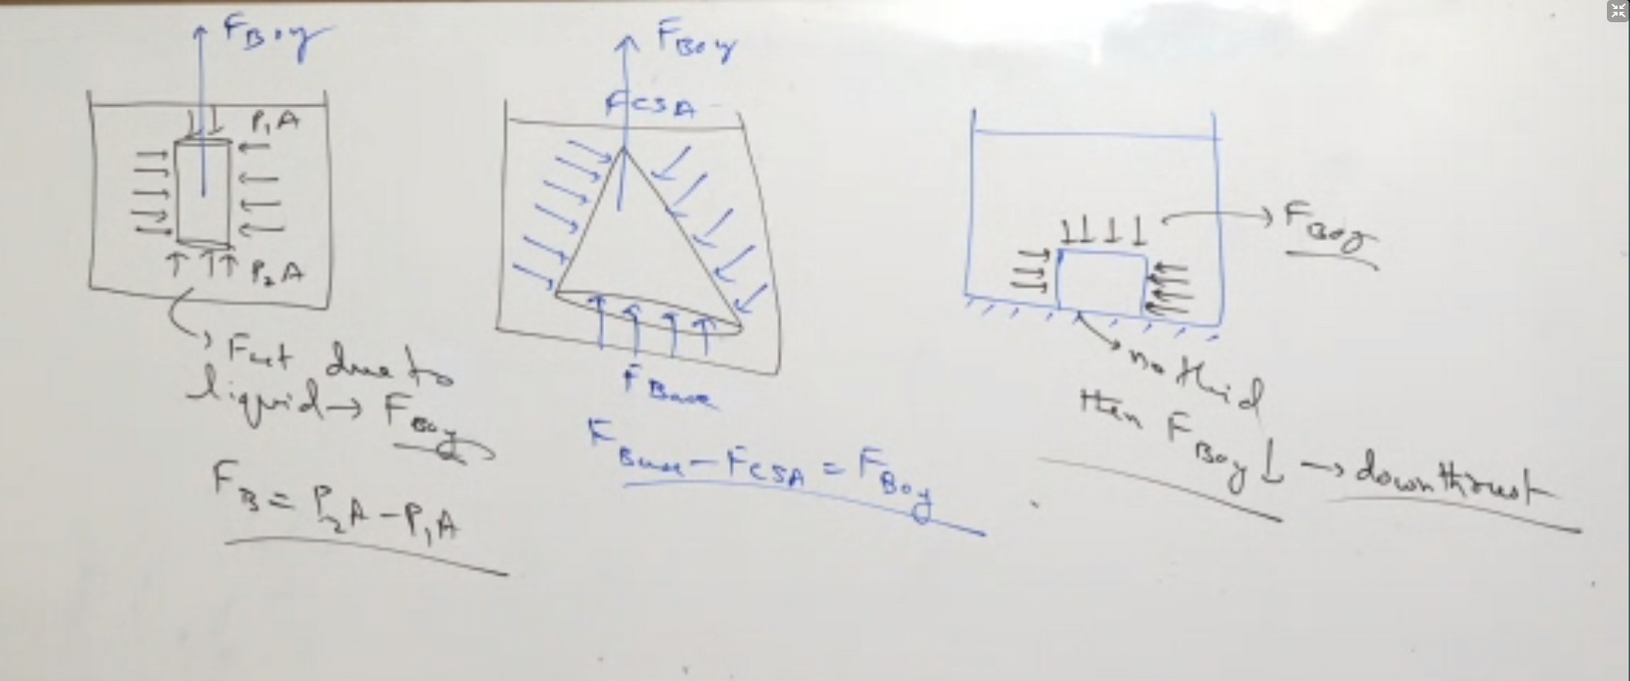 F Boy
P₁A
P₂A
Fnet due to
liquid → F Boy
F B = P₂A - P₁A
F Boy
F CSA
F Base
F Base - F CSA = F Boy
F Boy
no fluid
then F Boy ↓ → downthrust